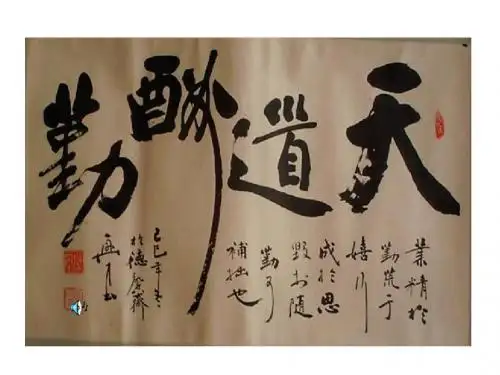 天道酬勤
業精於
勤荒于
嬉行
成於思
毁於随
勤可
補拙也
己巳年冬
於德馨齋